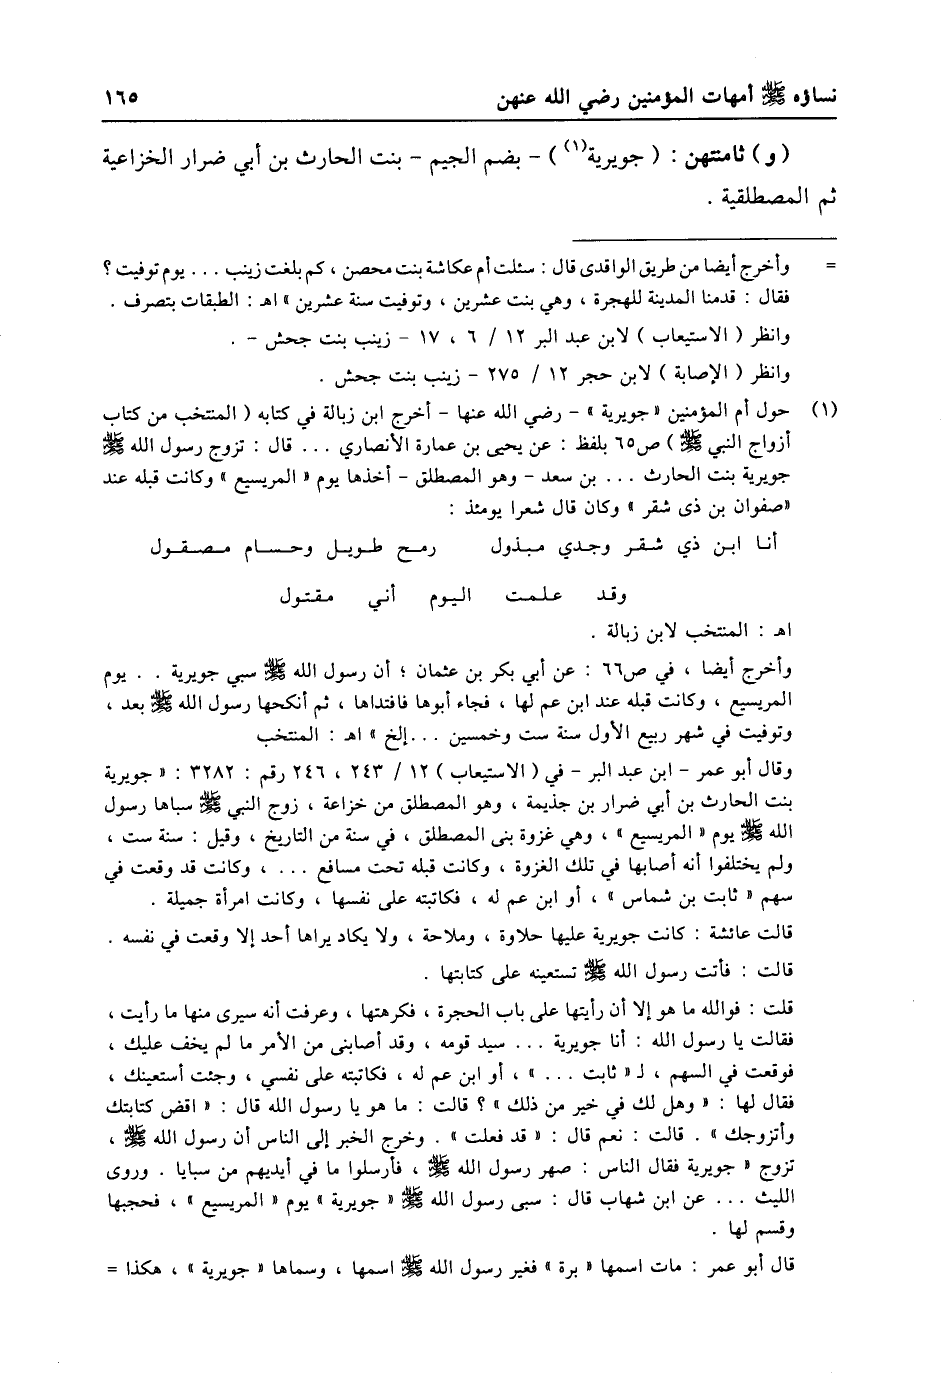 نساؤه ﷺ أمهات المؤمنين رضي الله عنهن ١٦٥
( و ) ثامنتهن : ( جويرية(١) ) - بضم الجيم - بنت الحارث بن أبي ضرار الخزاعية
ثم المصطلقية .
= وأخرج أيضا من طريق الواقدى قال : سئلت أم عكاشة بنت محصن ، كم بلغت زينب ... يوم توفيت ؟
فقال : قدمنا المدينة للهجرة ، وهي بنت عشرين ، وتوفيت سنة عشرين » اهـ : الطبقات بتصرف .
وانظر ( الاستيعاب ) لابن عبد البر ١٢ / ٦ ، ١٧ - زينب بنت جحش - .
وانظر ( الإصابة ) لابن حجر ١٢ / ٢٧٥ - زينب بنت جحش .
(١) حول أم المؤمنين «جويرية » - رضي الله عنها - أخرج ابن زبالة في كتابه ( المنتخب من كتاب
أزواج النبي ﷺ ) ص٦٥ بلفظ : عن يحيى بن عمارة الأنصاري ... قال : تزوج رسول الله ﷺ
جويرية بنت الحارث ... بن سعد - وهو المصطلق - أخذها يوم « المريسيع » وكانت قبله عند
«صفوان بن ذى شقر » وكان قال شعرا يومئذ :
أنا ابن ذي شقر وجدي مبذول رمح طويل وحسام مصقول
وقد علمت اليوم أني مقتول
اهـ : المنتخب لابن زبالة .
وأخرج أيضا ، في ص٦٦ : عن أبي بكر بن عثمان ؛ أن رسول الله ﷺ سبي جويرية . . يوم
المريسيع ، وكانت قبله عند ابن عم لها ، فجاء أبوها فافتداها ، ثم أنكحها رسول الله ﷺ بعد ،
وتوفيت في شهر ربيع الأول سنة ست وخمسين ...إلخ » اهـ : المنتخب
وقال أبو عمر - ابن عبد البر - في ( الاستيعاب ) ١٢ / ٢٤٣ ، ٢٤٦ رقم : ٣٢٨٢ : « جويرية
بنت الحارث بن أبي ضرار بن جذيمة ، وهو المصطلق من خزاعة ، زوج النبي ﷺ سباها رسول
الله ﷺ يوم « المريسيع » ، وهي غزوة بنى المصطلق ، في سنة من التاريخ ، وقيل : سنة ست ،
ولم يختلفوا أنه أصابها في تلك الغزوة ، وكانت قبله تحت مسافع ... ، وكانت قد وقعت في
سهم « ثابت بن شماس » ، أو ابن عم له ، فكاتبته على نفسها ، وكانت امرأة جميلة .
قالت عائشة : كانت جويرية عليها حلاوة ، وملاحة ، ولا يكاد يراها أحد إلا وقعت في نفسه .
قالت : فأتت رسول الله ﷺ تستعينه على كتابتها .
قلت : فوالله ما هو إلا أن رأيتها على باب الحجرة ، فكرهتها ، وعرفت أنه سيرى منها ما رأيت ،
فقالت يا رسول الله : أنا جويرية ... سيد قومه ، وقد أصابنى من الأمر ما لم يخف عليك ،
فوقعت في السهم ، لـ « ثابت ... » ، أو ابن عم له ، فكاتبته على نفسي ، وجئت أستعينك ،
فقال لها : « وهل لك في خير من ذلك » ؟ قالت : ما هو يا رسول الله قال : « اقض كتابتك
وأتزوجك » . قالت : نعم قال : « قد فعلت » . وخرج الخبر إلى الناس أن رسول الله ﷺ ،
تزوج « جويرية فقال الناس : صهر رسول الله ﷺ ، فأرسلوا ما في أيديهم من سبايا . وروى
الليث ... عن ابن شهاب قال : سبى رسول الله ﷺ « جويرية » يوم « المريسيع » ، فحجبها
وقسم لها .
قال أبو عمر : مات اسمها « برة » فغير رسول الله ﷺ اسمها ، وسماها « جويرية » ، هكذا =